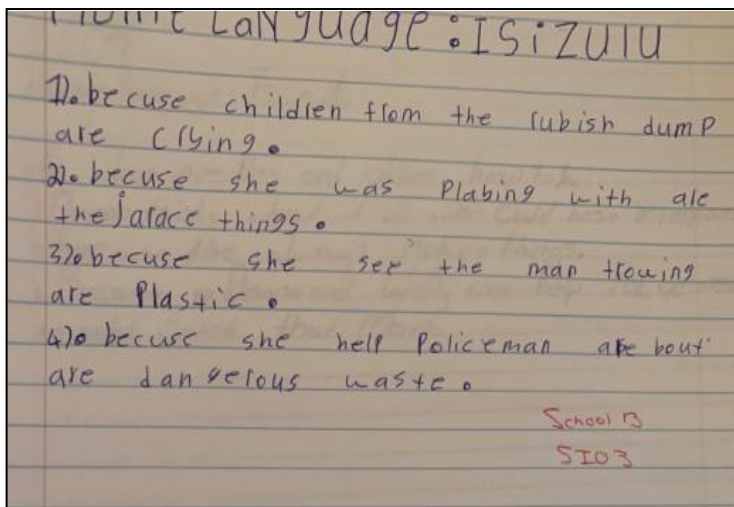 Home Language : ISiZulu
1). becuse children from the rubish dump
are crying.
2). becuse she was Plabing with are
the Jarace things.
3). becuse she see the man trowing
are Plastic.
4). becuse she help Policeman are bout
are dangerous waste.
School B
SI03